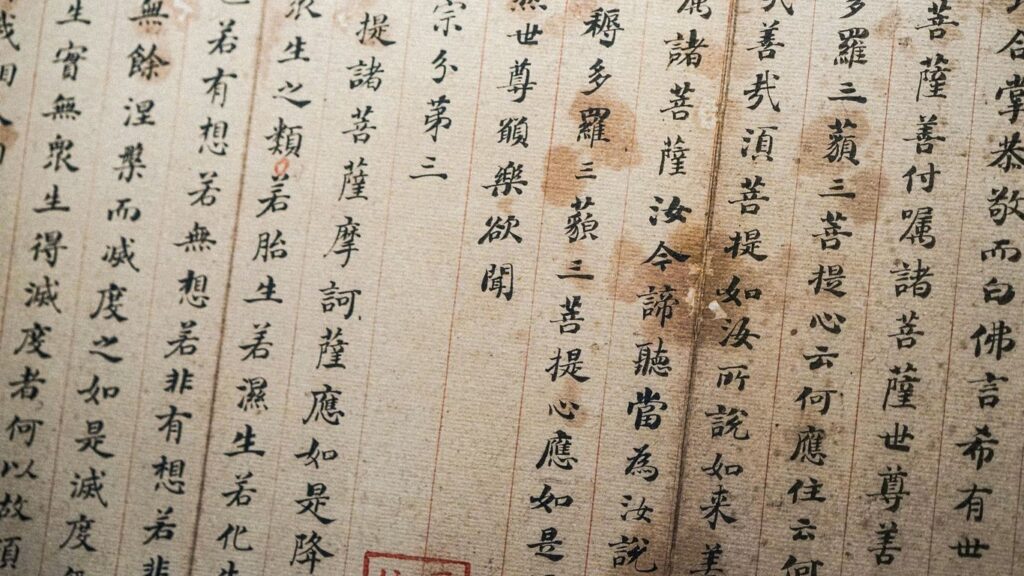 合掌恭敬而白佛言希有世
菩薩善付嘱諸菩薩世尊善
多羅三藐三菩提心云何應住云何
哉善哉湏菩提如汝所說如来善
嘱諸菩薩汝今諦聽當為汝說
耨多羅三藐三菩提心應如是
然世尊願樂欲聞
宗分第三
提諸菩薩摩訶薩應如是降
衆生之類若胎生若濕生若化生
色若有想若無想若非有想若非
無餘涅槃而滅度之如是滅度
生實無衆生得滅度者何以故湏
我相人相